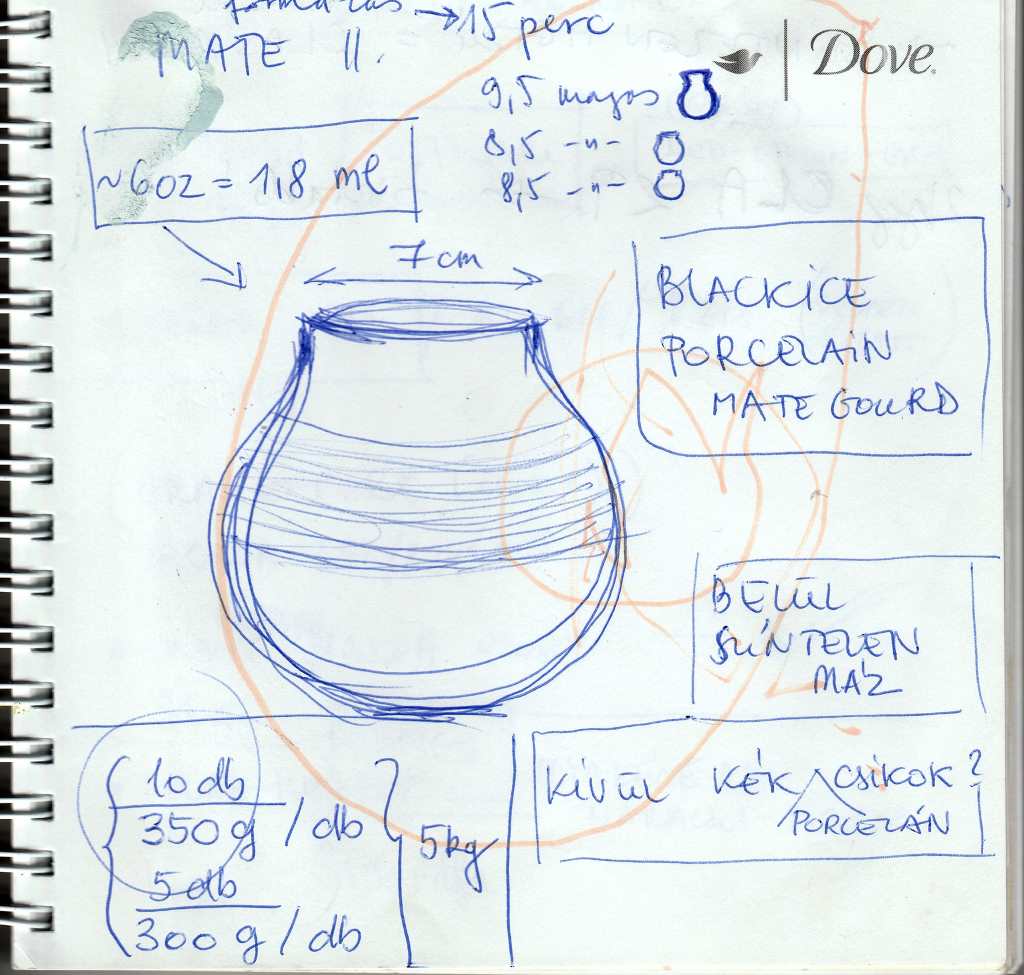 formázás → 15 perc
MATE II.
Dove
9,5 magas
8,5 -"-
8,5 -"-
~6oz = 1,8 ml
7cm
BLACKICE
PORCELAIN
MATE GOURD
BELÜL
SZÍNTELEN
MÁZ
KÍVÜL KÉK CSÍKOK?
PORCELÁN
10 db
350 g / db
5 db
300 g / db
5kg